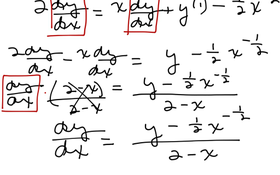 2 dy/dx = x dy/dx + y(1) - 1/2 x
2 dy/dx - x dy/dx = y - 1/2 x^(-1/2)
dy/dx · (2-x)/(2-x) = (y - 1/2 x^(-1/2))/(2-x)
dy/dx = (y - 1/2 x^(-1/2))/(2-x)